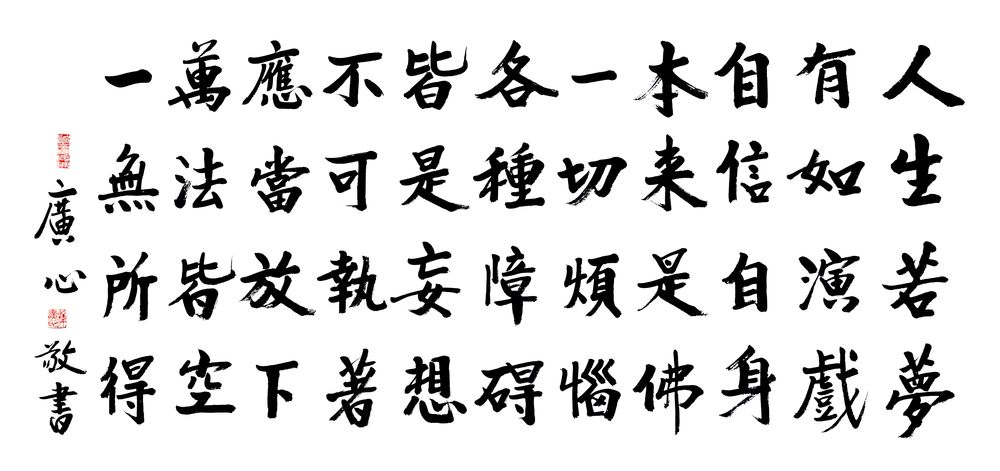 人生若夢
有如演戲
自信自身
本来是佛
一切煩惱
各種障碍
皆是妄想
不可執著
應當放下
萬法皆空
一無所得
廣心敬書